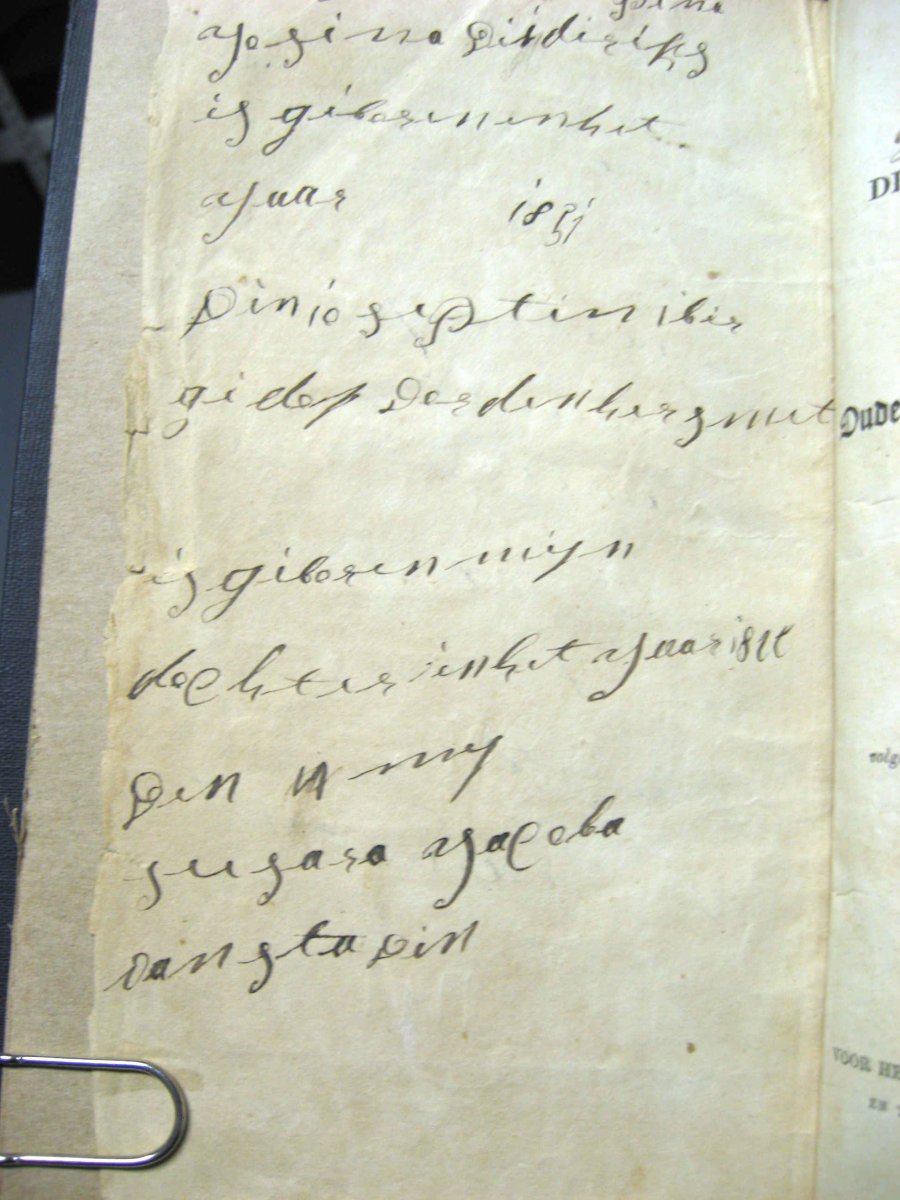 pina
yosina Didiriks
is giboren enhet
yaar 1851
Din 10 septiniber
gi dop Dordenhersmet
is giboren myn
dochter enhet yaar
Den my
susara yacoba
van sta Din
DI
Oude
volg
VOOR HE
EN